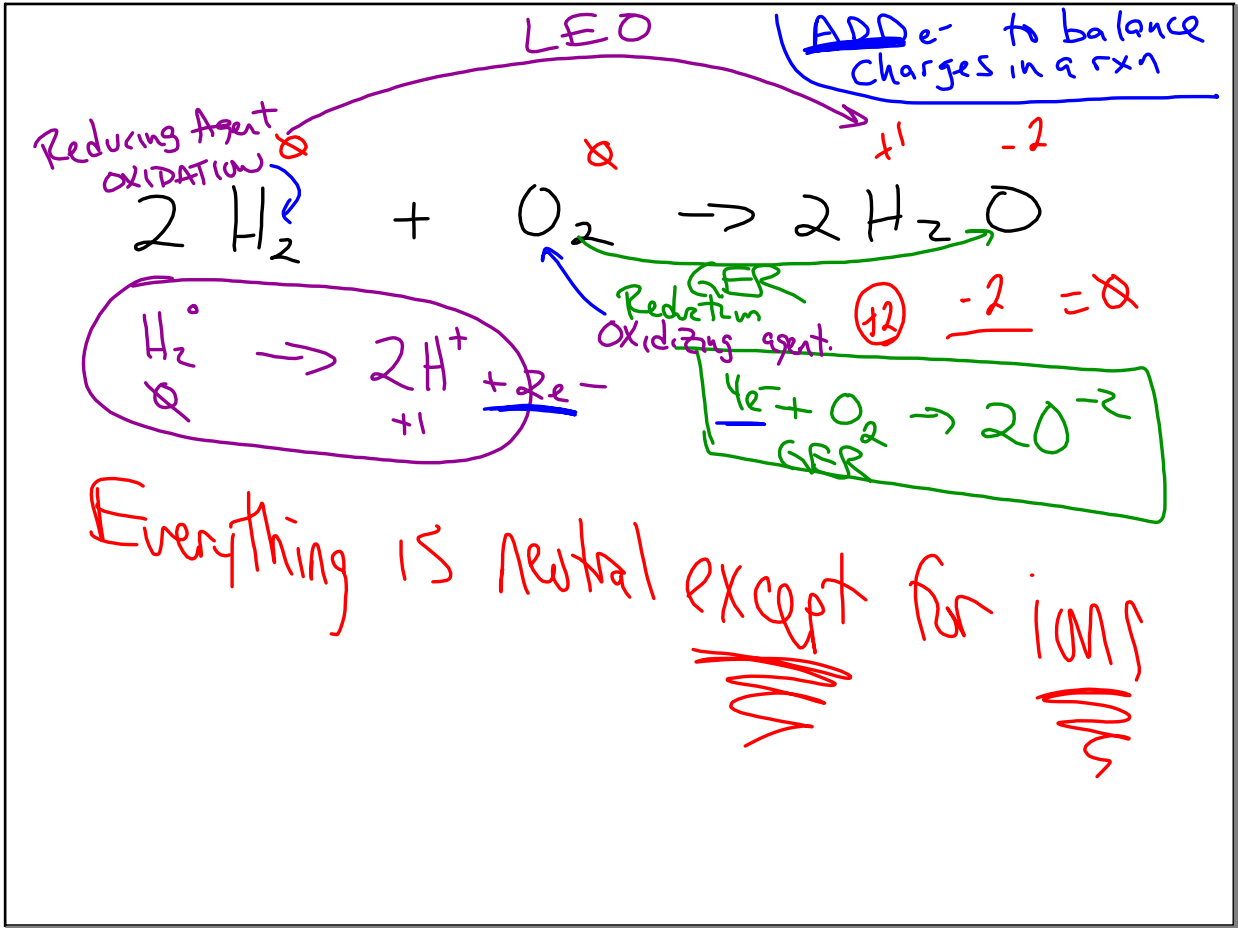 LEO
ADD e- to balance
charges in a rxn
Reducing Agent
OXIDATION
0 0 +1 -2
2 H₂ + O₂ -> 2 H₂ O
GER
Reduction
Oxidizing agent.
+2 -2 = 0
H₂⁰ -> 2H⁺ + 2e⁻
0 +1
4e⁻ + O₂ -> 2O⁻²
GER
Everything is neutral except for ions